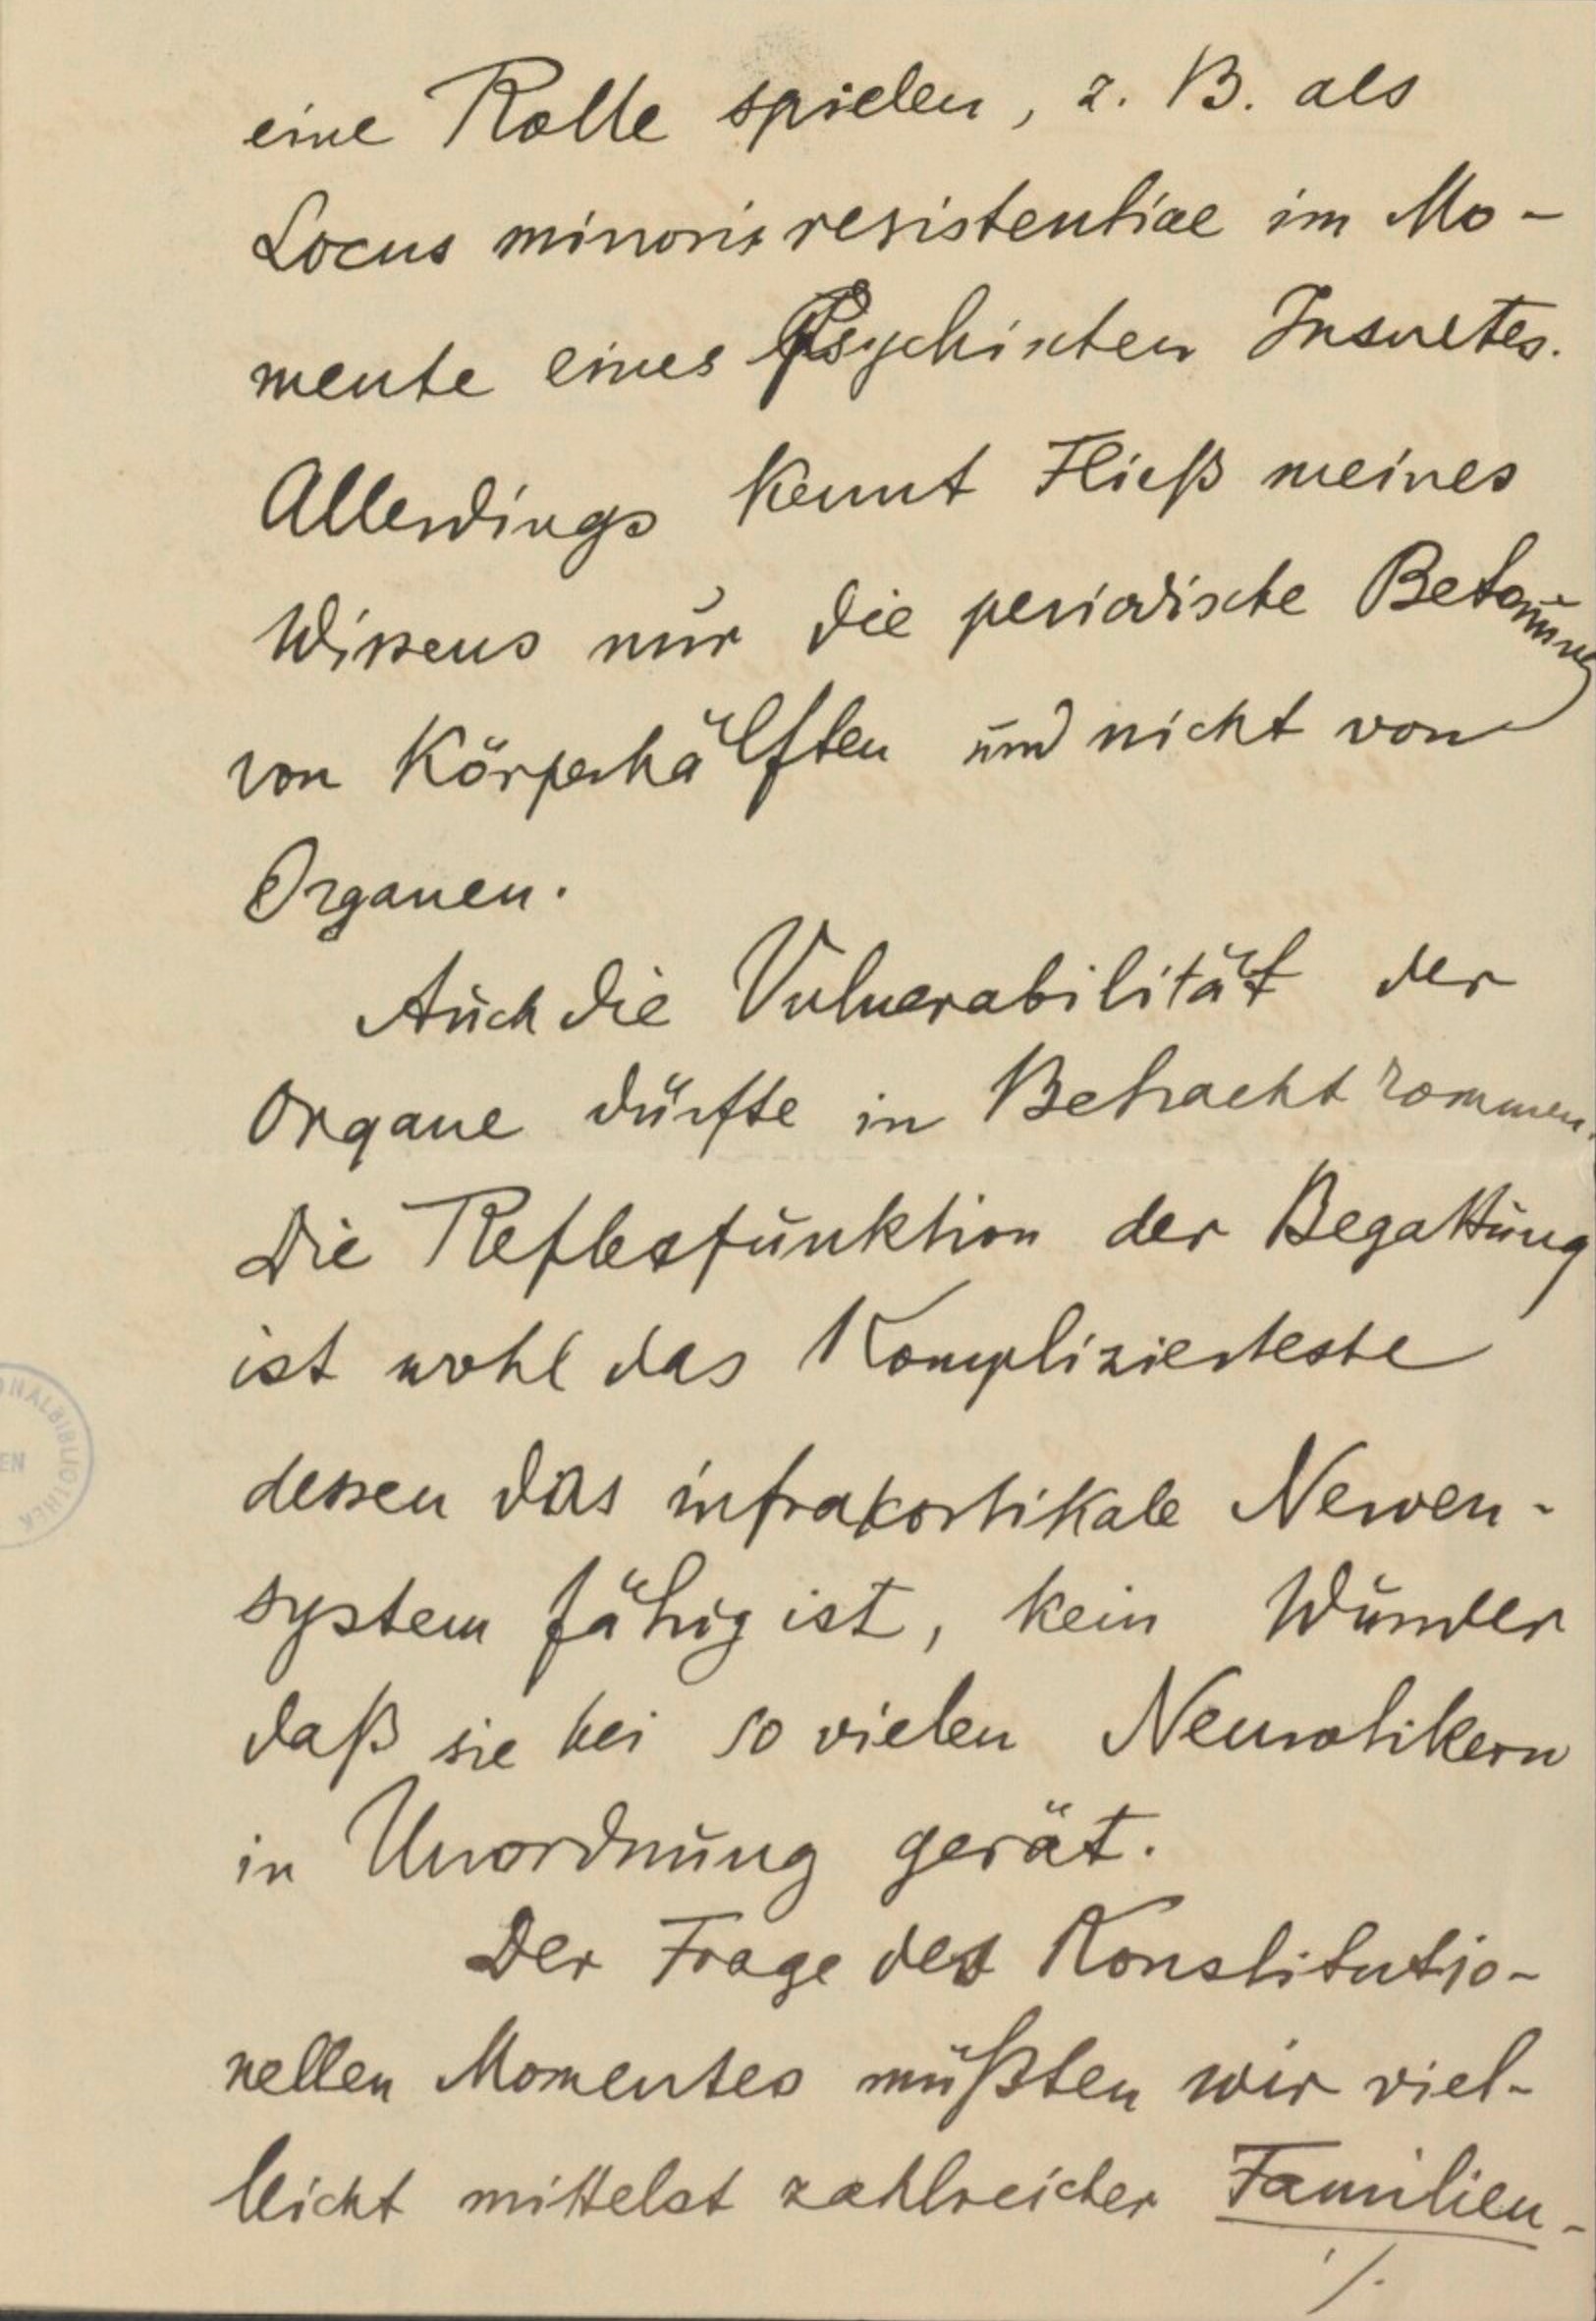 eine Rolle spielen, z. B. als
Locus minoris resistentiae im Mo-
mente eines Psychischen Insultes.
Allerdings kennt Fließ meines
Wissens nur die periodische Betonung
von Körperhälften und nicht von
Organen.
Auch die Vulnerabilität der
Organe dürfte in Betracht kommen.
Die Reflexfunktion der Begattung
ist wohl das Komplizierteste
dessen das infrakortikale Nerven-
system fähig ist, kein Wunder
daß sie bei so vielen Neurotikern
in Unordnung gerät.
Der Frage des Konstitutio-
nellen Momentes müßten wir viel-
leicht mittelst zahlreicher Familien-
./.
NALBIBLIOTHEK
EN